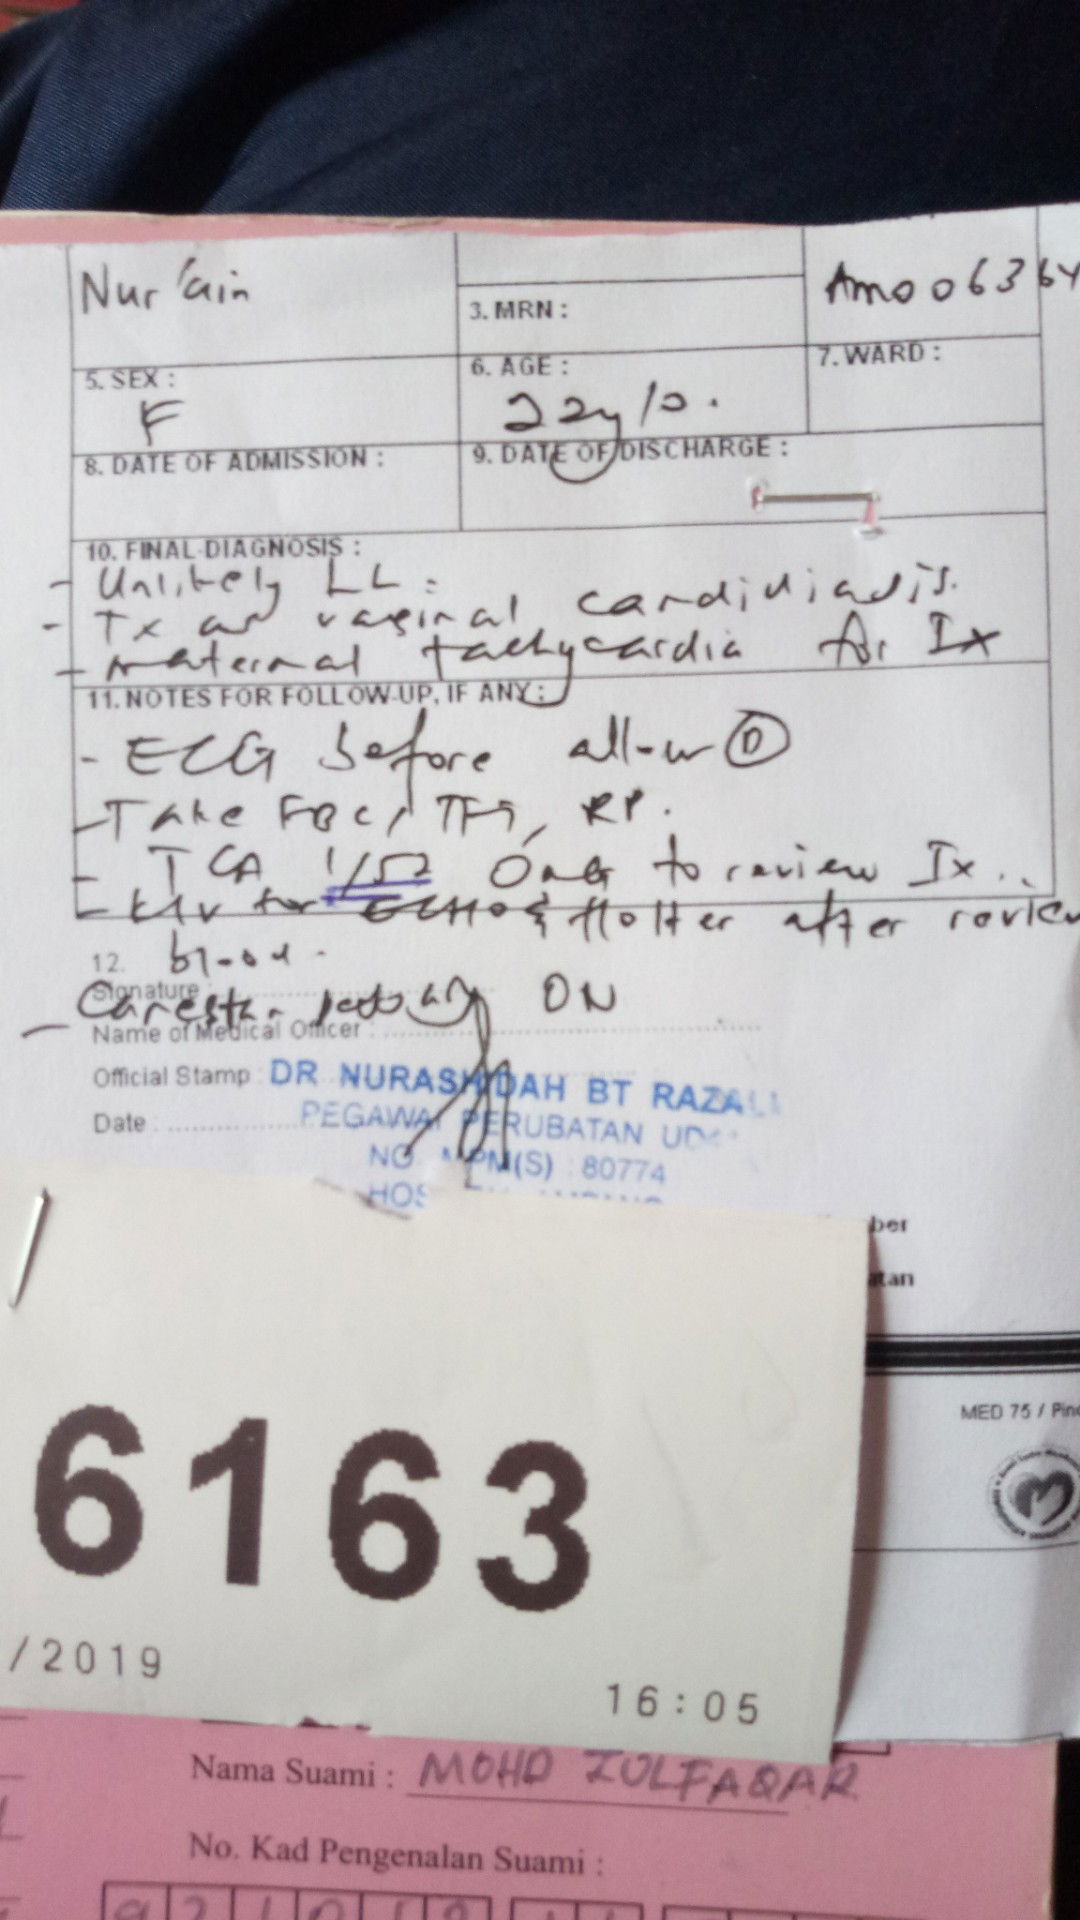 Nur 'ain
3. MRN :
Am006364
5. SEX :
F
6. AGE :
22y/o.
7. WARD :
8. DATE OF ADMISSION :
9. DATE OF DISCHARGE :
10. FINAL DIAGNOSIS :
- Unlikely LL.
- Tx as vaginal candidiasis.
- maternal tachycardia for Ix
11. NOTES FOR FOLLOW-UP, IF ANY :
- ECG before allow D
- Take FBC, TFT, RP.
- TCA 1/52 O&G to review Ix..
- KIV for ECHO & Holter after review
blood.
12.
Signature :
- Canesten pessary ON
Name of Medical Officer :
Official Stamp : DR NURASHIDAH BT RAZALI
Date : PEGAWAI PERUBATAN UD
NO. MPM(S) : 80774
ber
atan
6163
/2019
16:05
MED 75 / Pin
Nama Suami : MOHD ZULFAQAR
No. Kad Pengenalan Suami :